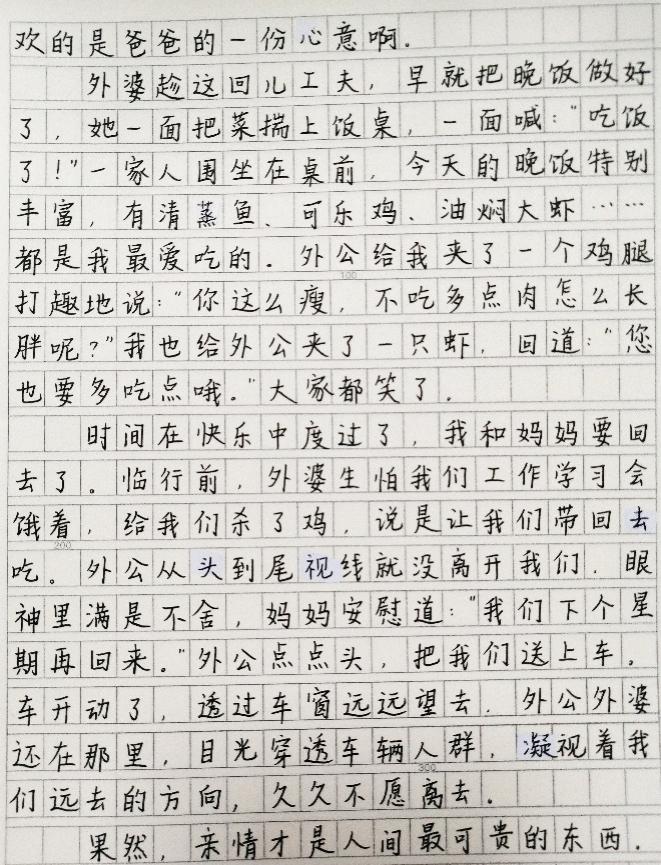 欢的是爸爸的一份心意啊.
外婆趁这回儿工夫，早就把晚饭做好
了，她一面把菜揣上饭桌，一面喊："吃饭
了！"一家人围坐在桌前，今天的晚饭特别
丰富，有清蒸鱼、可乐鸡、油焖大虾……
都是我最爱吃的.外公给我夹了一个鸡腿
100
打趣地说："你这么瘦，不吃多点肉怎么长
胖呢？"我也给外公夹了一只虾，回道："您
也要多吃点哦。"大家都笑了.
时间在快乐中度过了，我和妈妈要回
去了。临行前，外婆生怕我们工作学习会
饿着，给我们杀了鸡，说是让我们带回去
200
吃。外公从头到尾视线就没离开我们.眼
神里满是不舍，妈妈安慰道："我们下个星
期再回来。"外公点点头，把我们送上车。
车开动了，透过车窗远远望去.外公外婆
还在那里，目光穿透车辆人群，凝视着我
300
们远去的方向，久久不愿离去.
果然，亲情才是人间最可贵的东西.